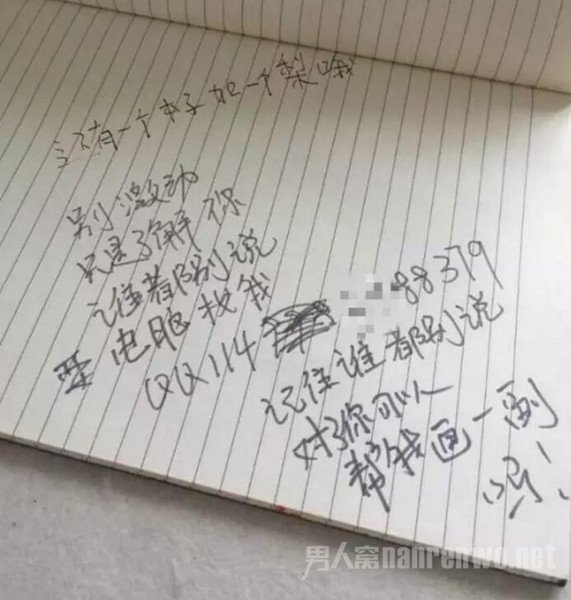 还有一个本子加一个梨哦
别激动
只是了解你
谁都别说
电脑找我
QQ114 88379
记住谁都别说
对了你可以
帮我画一副
吗!
男人窝nanrenwo.net